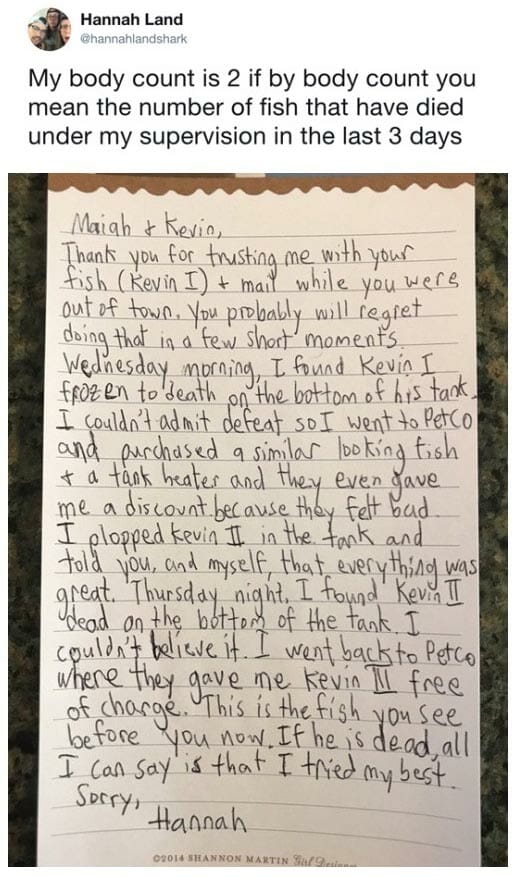 Hannah Land
@hannahlandshark
My body count is 2 if by body count you
mean the number of fish that have died
under my supervision in the last 3 days
Maiah & Kevin,
Thank you for trusting me with your
fish (Kevin I) + mail while you were
out of town. You probably will regret
doing that in a few short moments.
Wednesday morning, I found Kevin I
frozen to death on the bottom of his tank.
I couldn't admit defeat so I went to PetCo
and purchased a similar looking fish
+ a tank heater and they even gave
me a discount because they felt bad.
I plopped Kevin II in the tank and
told you, and myself, that everything was
great. Thursday night, I found Kevin II
dead on the bottom of the tank. I
couldn't believe it. I went back to Petco
where they gave me Kevin III free
of charge. This is the fish you see
before you now. If he is dead, all
I can say is that I tried my best.
Sorry,
Hannah
©2014 SHANNON MARTIN Girl